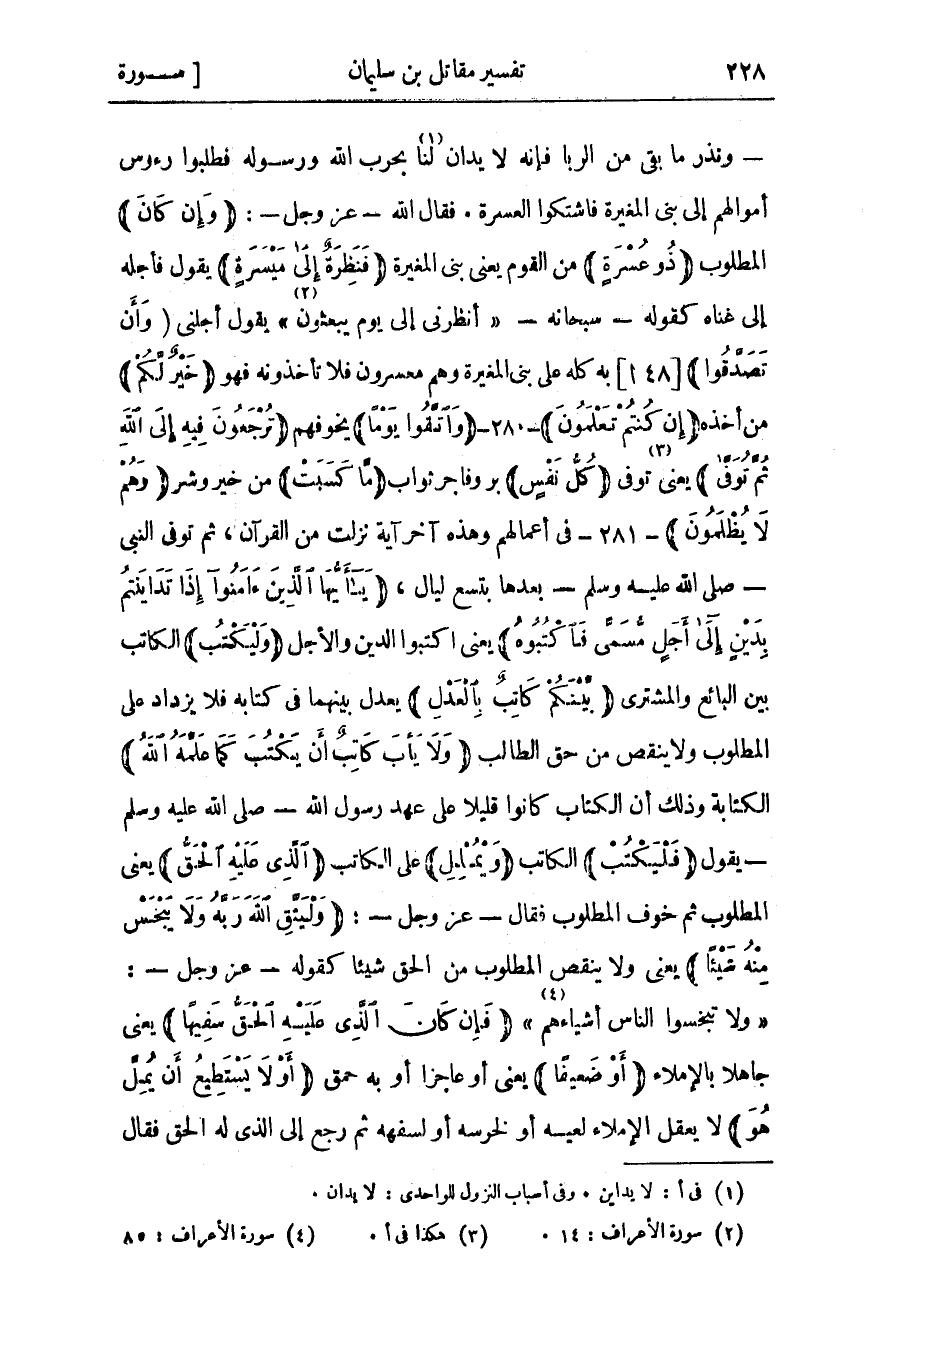 ٢٢٨ تفسير مقاتل بن سليمان [ سورة
— ونذر ما بقى من الربا فإنه لا يدان لنا(١) بحرب الله ورسوله فطلبوا رءوس
أموالهم إلى بنى المغيرة فاشتكوا العسرة . فقال الله — عز وجل — : ﴿ وَإِن كَانَ ﴾
المطلوب ﴿ ذُو عُسْرَةٍ ﴾ من القوم يعنى بنى المغيرة ﴿ فَنَظِرَةٌ إِلَىٰ مَيْسَرَةٍ ﴾ يقول فأجله
إلى غناه كقوله — سبحانه — « أنظرنى إلى يوم يبعثون(٢) » يقول أجلنى ( وَأَن
تَصَدَّقُوا ﴾ [ ٤٨ ا ] به كله على بنى المغيرة وهم معسرون فلا تأخذونه فهو ﴿ خَيْرٌ لَّكُمْ ﴾
من أخذه ﴿ إِن كُنتُمْ تَعْلَمُونَ ﴾ - ٢٨٠ - ﴿ وَٱتَّقُوا يَوْمًا ﴾ يخوفهم ﴿ تُرْجَعُونَ فِيهِ إِلَى ٱللَّهِ
ثُمَّ تُوَفَّىٰ ﴾ يعنى توفى(٣) ﴿ كُلُّ نَفْسٍ ﴾ بر وفاجر ثواب ﴿ مَّا كَسَبَتْ ﴾ من خير وشر ﴿ وَهُمْ
لَا يُظْلَمُونَ ﴾ - ٢٨١ - فى أعمالهم وهذه آخر آية نزلت من القرآن ، ثم توفى النبى
— صلى الله عليه وسلم — بعدها بتسع ليال ، ﴿ يَـٰٓأَيُّهَا ٱلَّذِينَ ءَامَنُوٓا إِذَا تَدَايَنتُم
بِدَيْنٍ إِلَىٰٓ أَجَلٍ مُّسَمًّى فَٱكْتُبُوهُ ﴾ يعنى اكتبوا الدين والأجل ﴿ وَلْيَكْتُب ﴾ الكاتب
بين البائع والمشترى ﴿ بَّيْنَكُمْ كَاتِبٌ بِٱلْعَدْلِ ﴾ يعدل بينهما فى كتابه فلا يزداد على
المطلوب ولا ينقص من حق الطالب ﴿ وَلَا يَأْبَ كَاتِبٌ أَن يَكْتُبَ كَمَا عَلَّمَهُ ٱللَّهُ ﴾
الكتابة وذلك أن الكتاب كانوا قليلا على عهد رسول الله — صلى الله عليه وسلم
— يقول ﴿ فَلْيَكْتُبْ ﴾ الكاتب ﴿ وَلْيُمْلِلِ ﴾ على الكاتب ﴿ ٱلَّذِى عَلَيْهِ ٱلْحَقُّ ﴾ يعنى
المطلوب ثم خوف المطلوب فقال — عز وجل — : ﴿ وَلْيَتَّقِ ٱللَّهَ رَبَّهُ وَلَا يَبْخَسْ
مِنْهُ شَيْئًا ﴾ يعنى ولا ينقص المطلوب من الحق شيئا كقوله — عز وجل — :
« ولا تبخسوا الناس أشياءهم(٤) » ﴿ فَإِن كَانَ ٱلَّذِى عَلَيْهِ ٱلْحَقُّ سَفِيهًا ﴾ يعنى
جاهلا بالإملاء ﴿ أَوْ ضَعِيفًا ﴾ يعنى أو عاجزا أو به حمق ﴿ أَوْ لَا يَسْتَطِيعُ أَن يُمِلَّ
هُوَ ﴾ لا يعقل الإملاء لعيه أو لخرسه أو لسفهه ثم رجع إلى الذى له الحق فقال
(١) فى أ : لا يداين . وفى أسباب النزول للواحدى : لا يدان .
(٢) سورة الأعراف : ١٤ . (٣) هكذا فى أ . (٤) سورة الأعراف : ٨٥